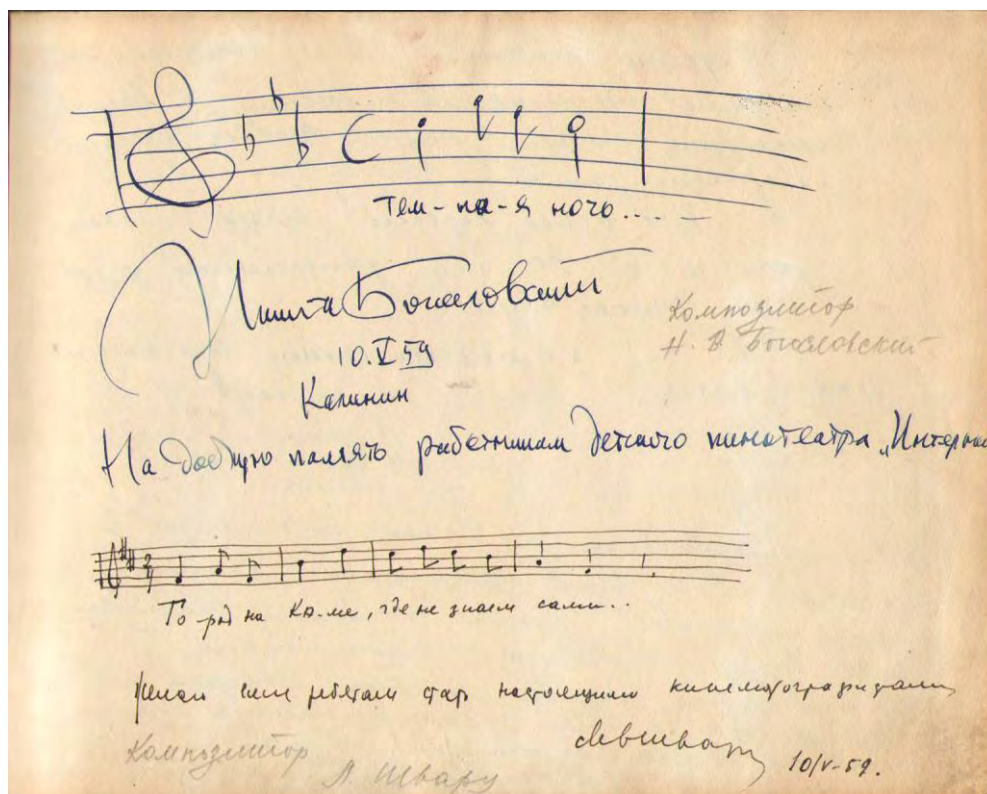 Тем-на-я ночь....
Никита Богословский
10.V 59
Калинин
Композитор
Н. В. Богословский
На добрую память работникам детского кинотеатра „Интерна
2/4
Го-род на Ка-ме, где не знаем сами...
Желаю всем ребятам стать настоящими кинематографистами
10/V-59.
Композитор
Л. Шварц